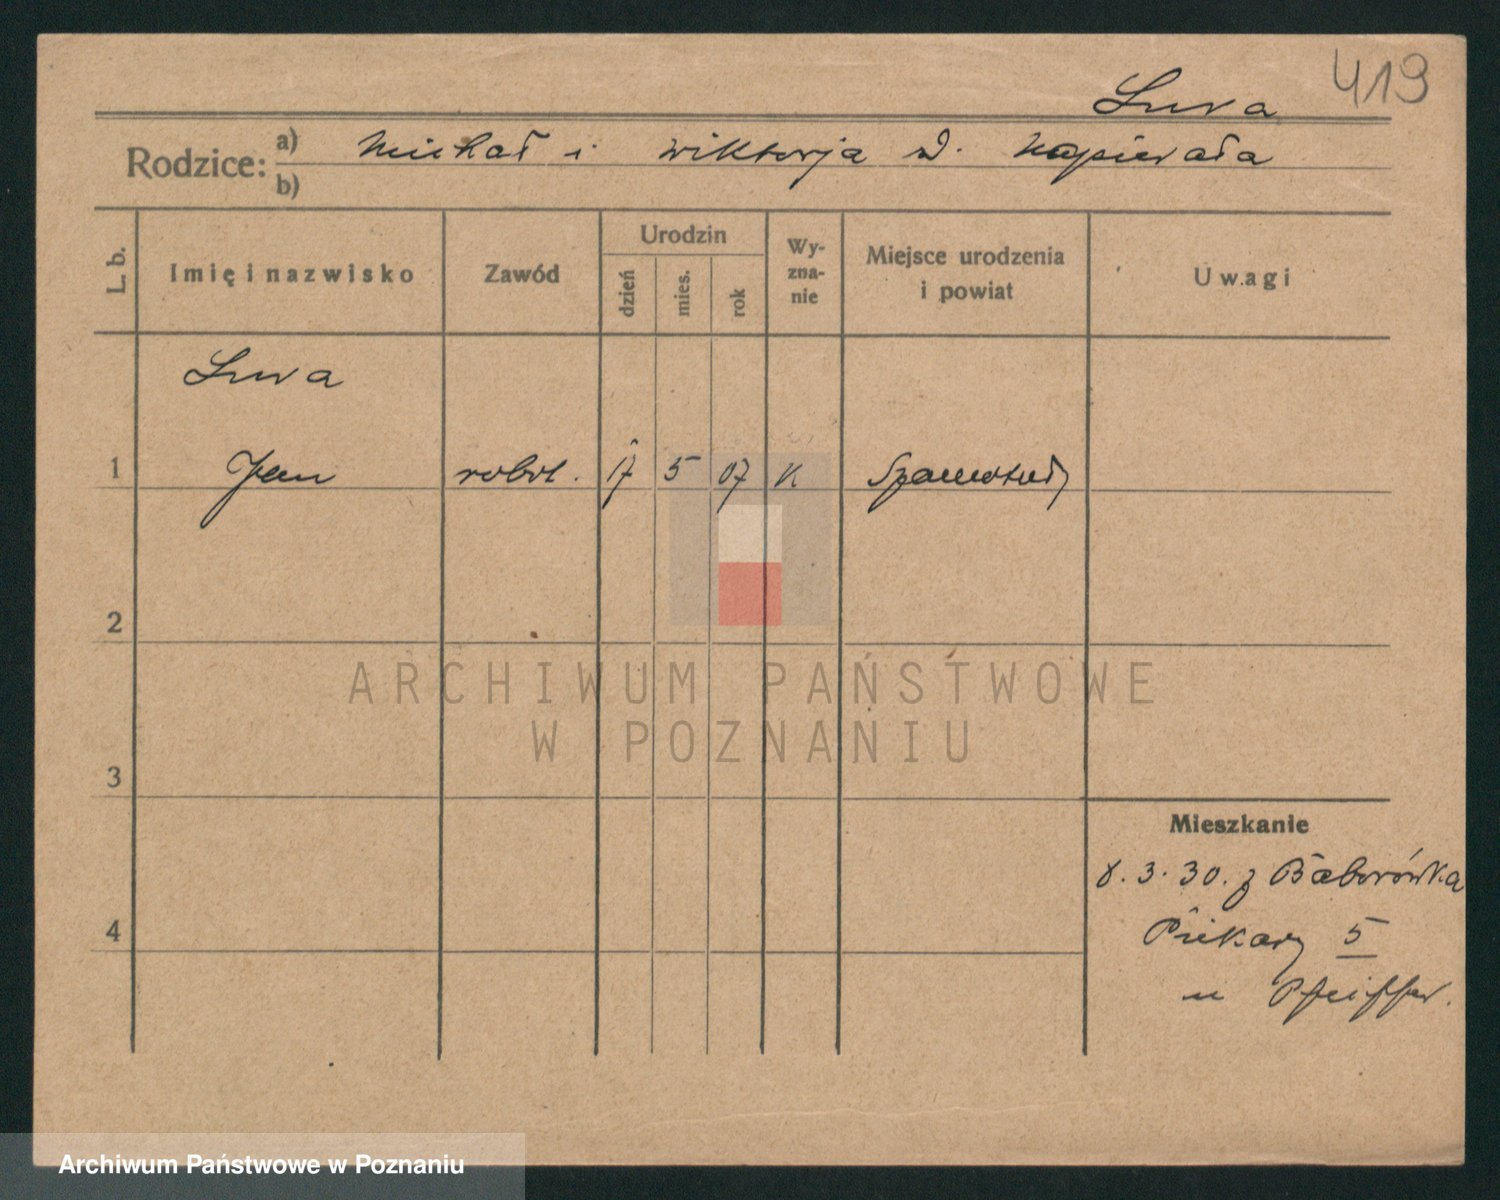 419
Rodzice: a) Michał i Wiktorja d. Napierała
b)
L. b.
Imię i nazwisko
Zawód
Urodzin
dzień
mies.
rok
Wy-
zna-
nie
Miejsce urodzenia
i powiat
Uwagi
1 Jan robot. 17 5 07 K Szamotuły
2
3
4
Mieszkanie
8. 3. 30. z Baborówka
Piekary 5
u Pfeiffer.
ARCHIWUM PAŃSTWOWE
W POZNANIU
Archiwum Państwowe w Poznaniu